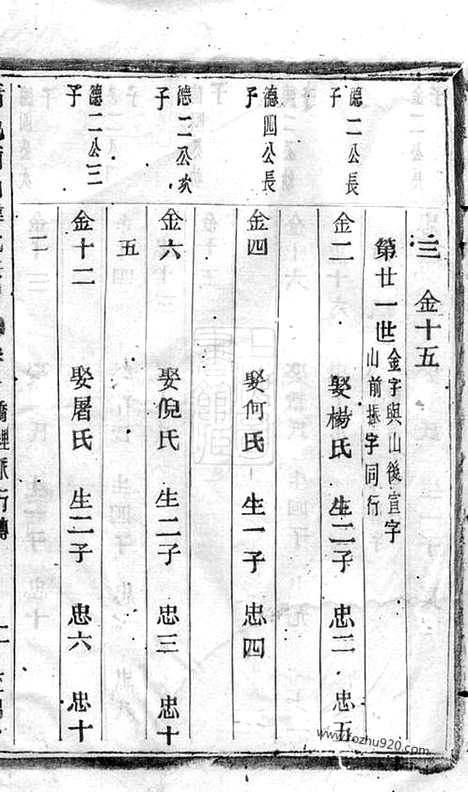 三 金十五
第廿一世 金字與山後宣字
山前振字同行
德二公長子 金二 娶楊氏 生二子 忠二 忠五
德四公長子 金四 娶何氏 生一子 忠四
德二公次子 金六 娶倪氏 生二子 忠三 忠十
五
德二公三子 金十二 娶屠氏 生二子 忠六 忠十
二
www.fozhu920.com